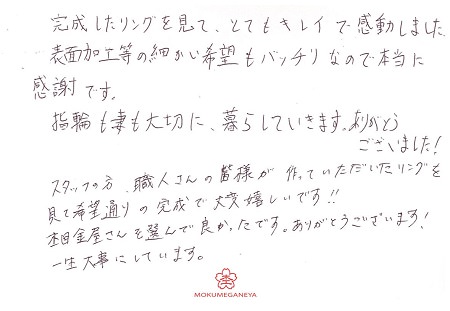 完成したリングを見て、とてもキレイで感動しました
表面加工等の細かい希望もバッチリなので本当に
感謝です。
指輪も妻も大切に、暮らしていきます。ありがとう
ございました！
スタッフの方、職人さんの皆様が作っていただいたリングを
見て希望通りの完成で大変嬉しいです!!
杢目金屋さんを選んで良かったです。ありがとうございます！
一生大事にしています。
MOKUMEGANEYA